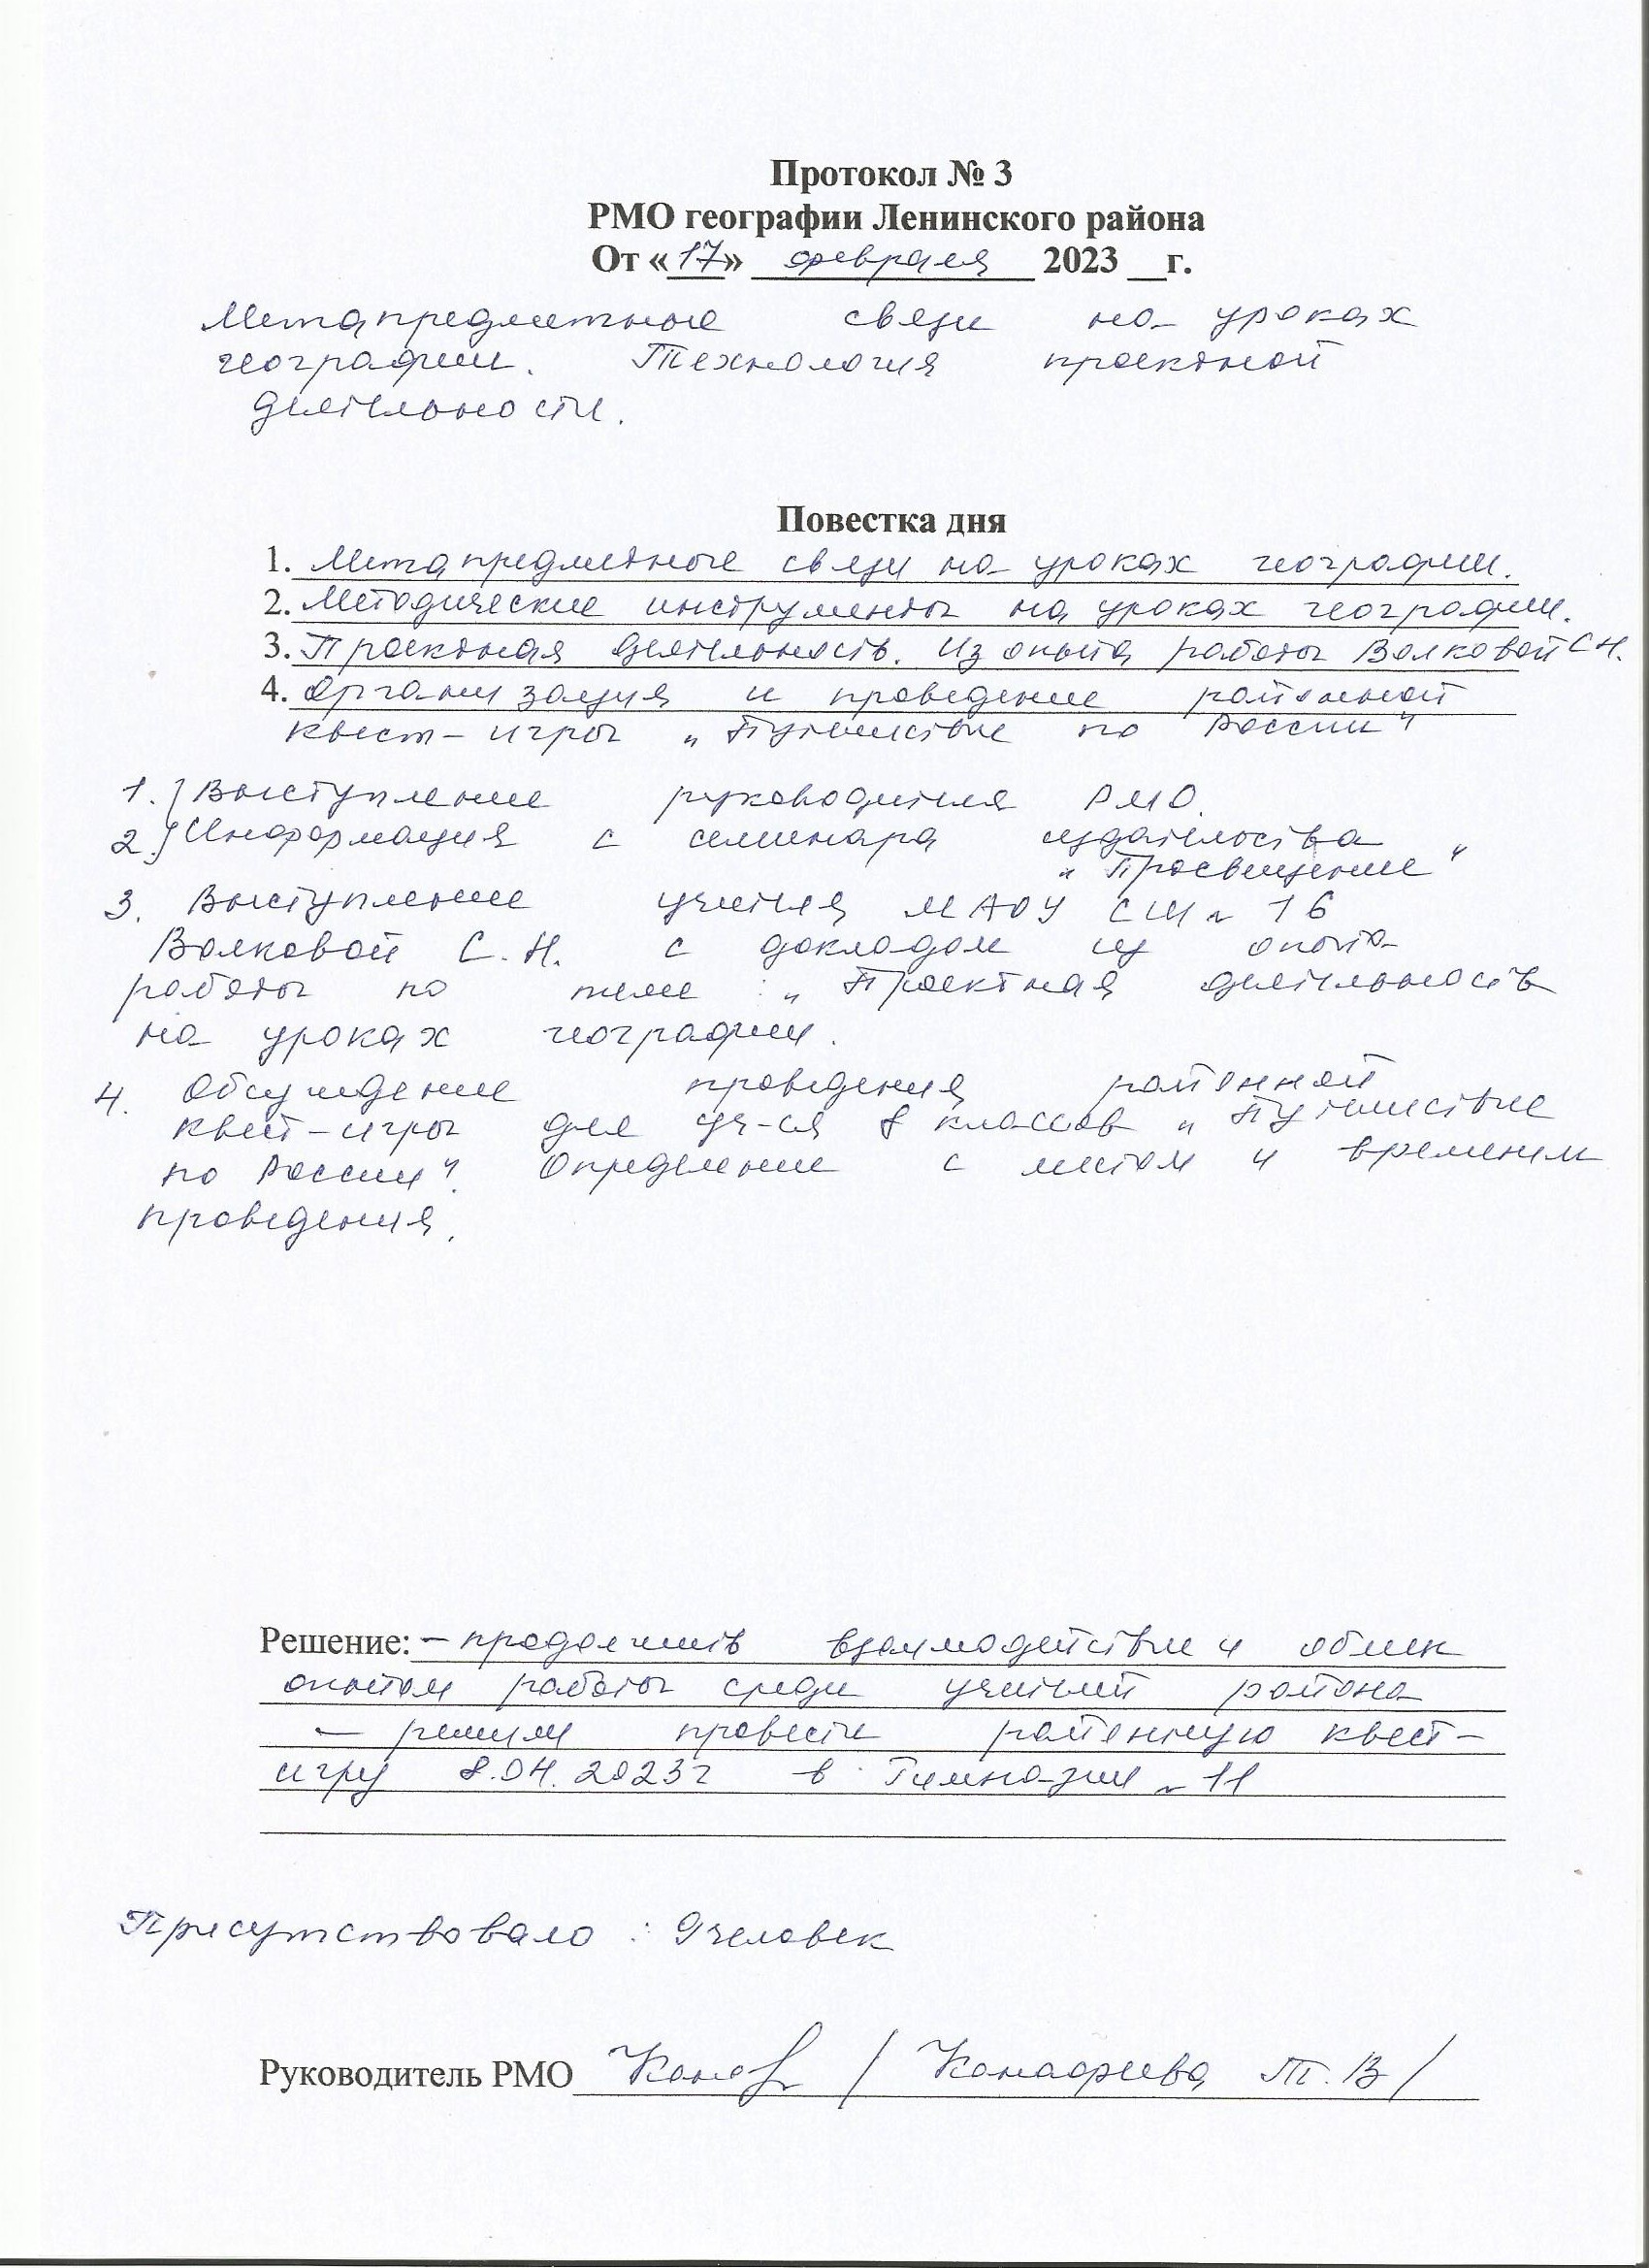 Протокол № 3
РМО географии Ленинского района
От «17» февраля 2023 __г.
Метапредметные связи на уроках
географии. Технология проектной
деятельности.
Повестка дня
1. Метапредметные связи на уроках географии.
2. Методические инструменты на уроках географии.
3. Проектная деятельность. Из опыта работы Волковой С Н.
4. Организация и проведение районной
квест-игры „Путешествие по России"
1.} Выступление руководителя РМО.
2.} Информация с семинара издательства
„Просвещение"
3. Выступление учителя МАОУ СШ № 16
Волковой С.Н. с докладом из опыта
работы по теме : „Проектная деятельность
на уроках географии.
4. Обсуждение проведения районной
квест-игры для уч-ся 8 классов „Путешествие
по России". Определение с местом и временем
проведения.
Решение: - продолжить взаимодействие и обмен
опытом работы среди учителей района
- решили провести районную квест-
игру 8.04.2023г в Гимназии № 11
Присутствовало : 9 человек
Руководитель РМО / Канафеева Т.В/